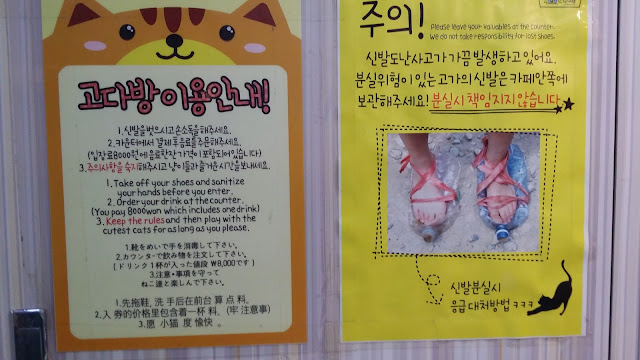 고다방 이용안내!
1. 신발을 벗으시고 손소독을 해주세요.
2. 카운터에서 결제 후 음료를 주문해주세요.
(입장료 8000원에 음료 한잔 가격이 포함되어있습니다)
3. 주의사항을 숙지해주시고 냥이들과 즐거운 시간을 보내세요.
1. Take off your shoes and sanitize
your hands before you enter.
2. Order your drink at the counter.
(You pay 8000won which includes one drink)
3. Keep the rules and then play with the
cutest cats for as long as you please.
1.靴をめいで手を消毒して下さい。
2.カウンターで飲み物を注文して下さい。
(ドリンク1杯が入った値段 ₩8,000です)
3.注意・事項を守って
ねこ達と楽しんで下さい。
1.先拖鞋, 洗 手后在前台 算 点 料。
2.入 券的价格里包含着一杯 料。(牢 注意事)
3.愿 小猫 度 愉快 。
주의!
Please leave your valuables at the counter.
We do not take responsibility for lost shoes.
신발도난사고가 가끔 발생하고 있어요.
분실위험이 있는 고가의 신발은 카페안쪽에
보관해주세요! 분실시 책임지지 않습니다
신발분실시
응급 대처방법 ㅋㅋㅋ